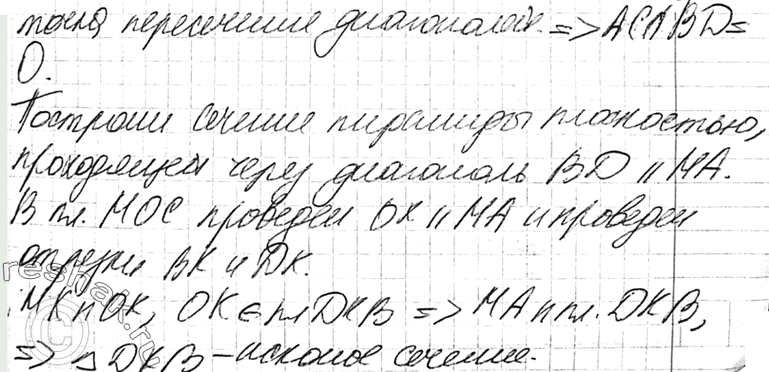 точка пересечения диагоналей. => AC∩BD=
O.
Построим сечение пирамиды плоскостью,
проходящей через диагональ BD || MA.
В пл. MOC проведем OK || MA и проведем
отрезки BK и DK.
MK || OK, OK ∈ пл DKB => MA || пл. DKB,
=> △DKB - искомое сечение.
reshak.ru